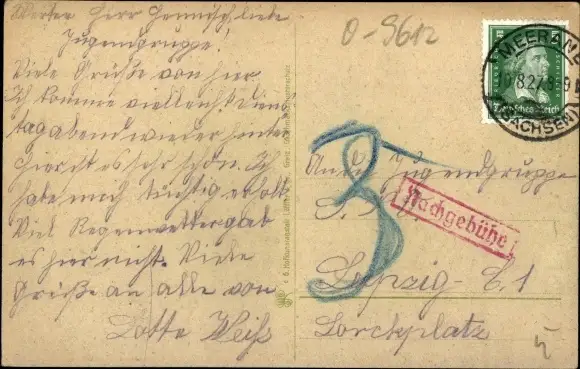 Werter Herr Hennisch, liebe
Jugendgruppe!
Viele Grüße von hier
Ich komme vielleicht Diens
tag abend wieder hinter
hier ist es sehr schön. Ich
habe mich tüchtig erholt
Viel Regenwetter gab
es hier nicht. Viele
Grüße an alle von
Lotte Weiß
O-9612
MEERANE
8.27
(SACHSEN)
Deutsches Reich
3
An die Jugendgruppe
Nachgebühr
Leipzig-C.1
Lorckplatz
5